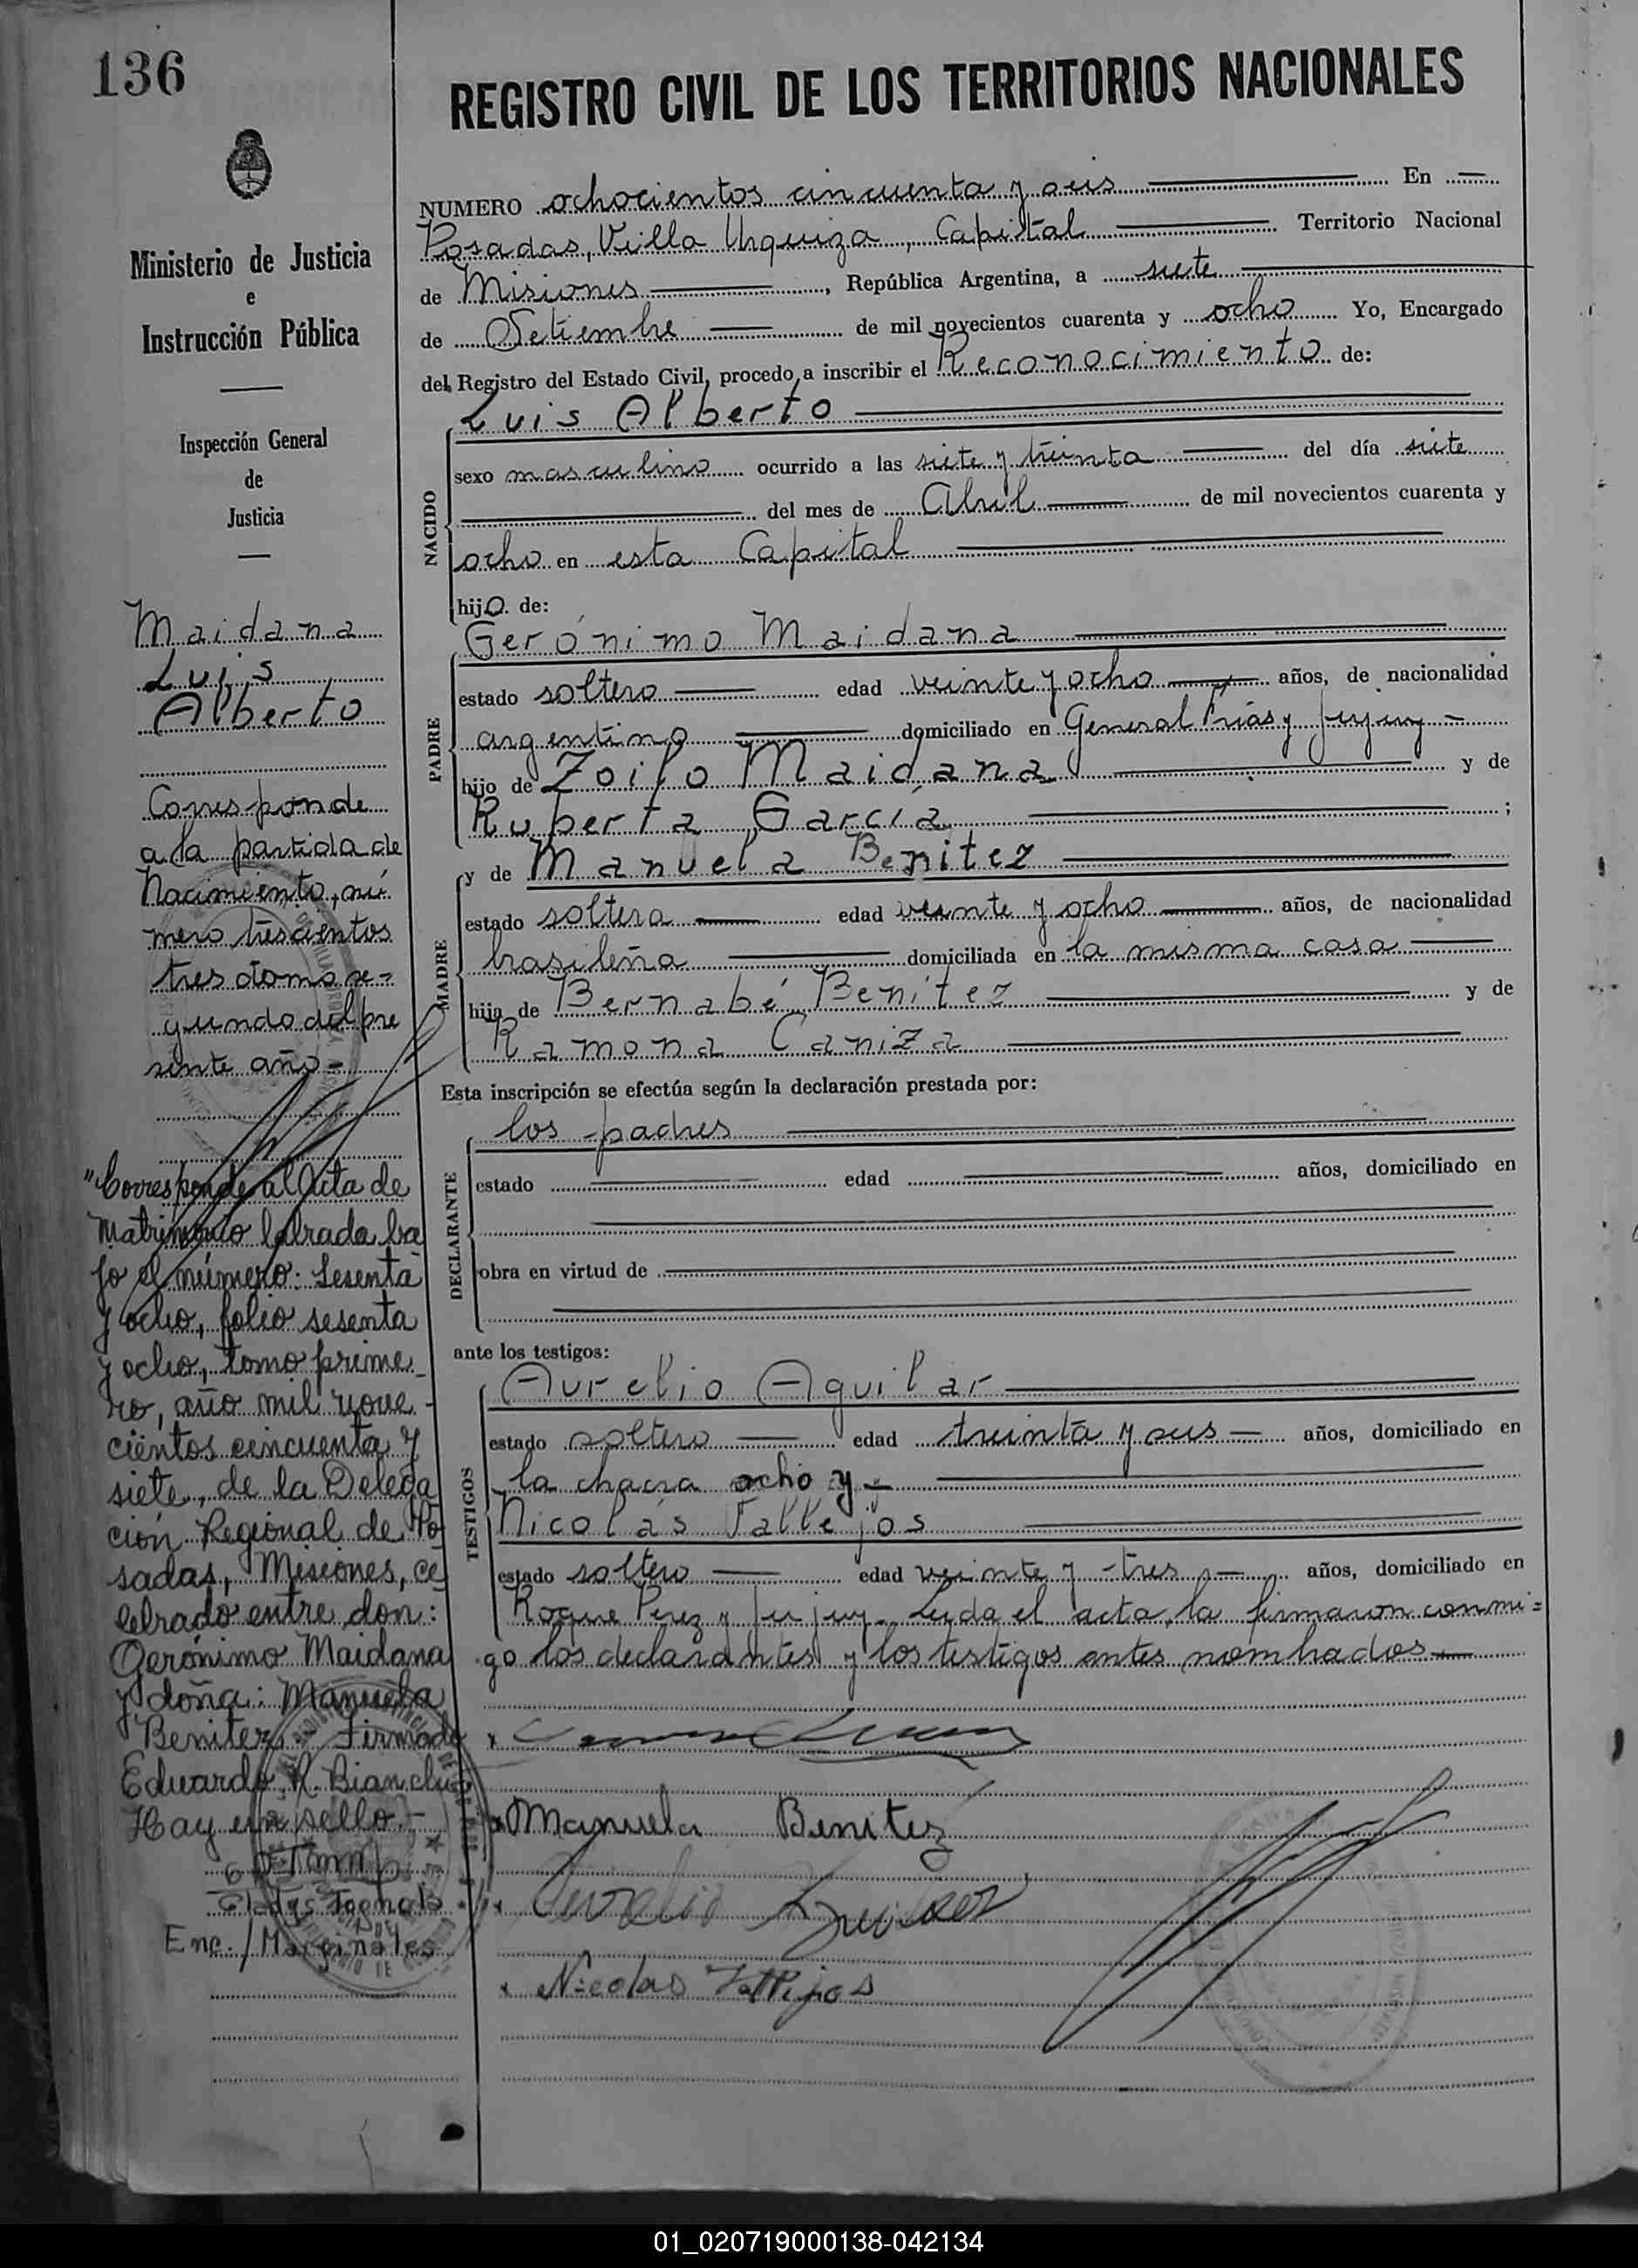 136
REGISTRO CIVIL DE LOS TERRITORIOS NACIONALES
Ministerio de Justicia
e
Instrucción Pública
Inspección General
de
Justicia
Maidana
Luis
Alberto
Corresponde
a la partida de
Nacimiento, nú-
mero trescientos
tres tomo se=
gundo del pre
sente año-
"Corresponde al Acta de
Matrimonio labrada ba
jo el número: Sesenta
y ocho, folio sesenta
y ocho, tomo prime_
ro, año mil nove-
cientos cincuenta y
siete, de la Delega
ción Regional de Po
sadas, Misiones, ce
lebrado entre don:
Gerónimo Maidana
y doña: Manuela
Benitez.- Firmado
Eduardo R. Bianchi
Hay un sello.-
Enc./Marginales
NUMERO ochocientos cincuenta y seis En
Posadas, Villa Urquiza, Capital Territorio Nacional
de Misiones, República Argentina, a siete
de Setiembre de mil novecientos cuarenta y ocho Yo, Encargado
del Registro del Estado Civil, procedo a inscribir el Reconocimiento de:
Luis Alberto
NACIDO
sexo masculino ocurrido a las siete y treinta del día siete
del mes de Abril de mil novecientos cuarenta y
ocho en esta Capital
hijo de:
Gerónimo Maidana
PADRE
estado soltero edad veinte y ocho años, de nacionalidad
argentino domiciliado en General Frías y Jujuy -
hijo de Zoilo Maidana y de
Ruperta García ;
y de Manuela Benitez
MADRE
estado soltera edad veinte y ocho años, de nacionalidad
brasileña domiciliada en la misma casa
hija de Bernabé Benítez y de
Ramona Caniza
Esta inscripción se efectúa según la declaración prestada por:
los padres
DECLARANTE
estado edad años, domiciliado en
obra en virtud de
ante los testigos:
Aurelio Aguilar
TESTIGOS
estado soltero edad treinta y seis años, domiciliado en
la chacra ocho y -
Nicolás Fallejos
estado soltero edad veinte y tres años, domiciliado en
Roque Perez y Jujuy. Leida el acta, la firmaron conmi=
go los declarantes y los testigos antes nombrados
Manuela Benitez
Aurelio Aguilar
Nicolas Fallejos
01_020719000138-042134